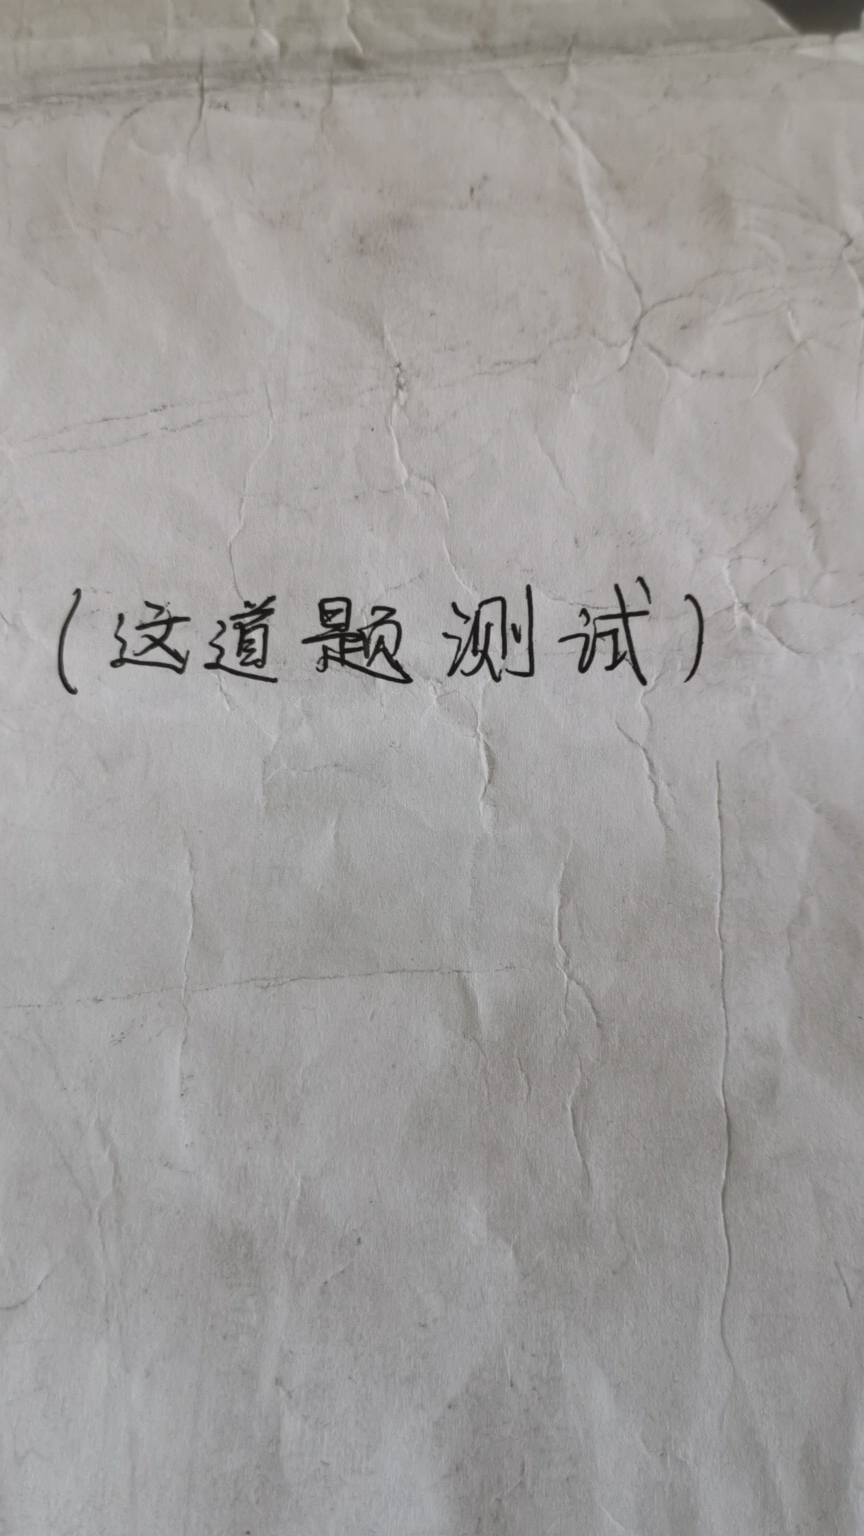 (这道题测试)